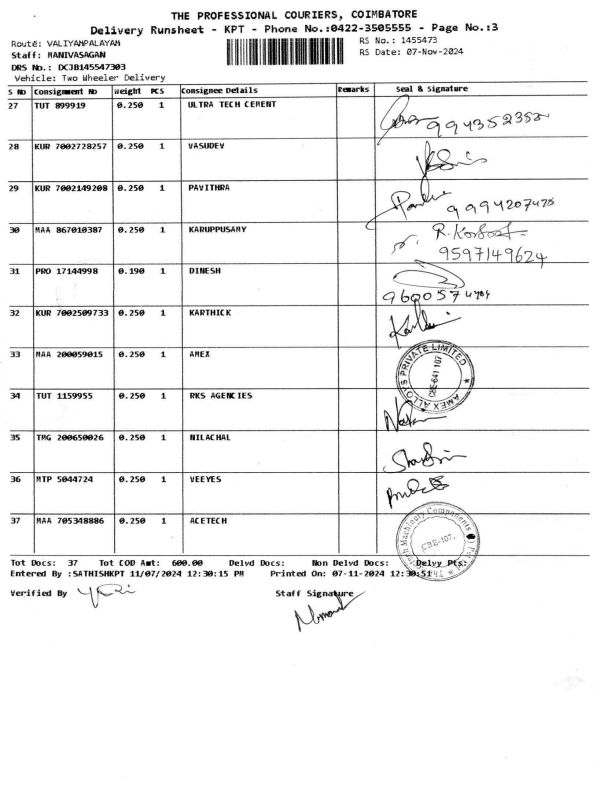 THE PROFESSIONAL COURIERS, COIMBATORE
Delivery Runsheet - KPT - Phone No.:0422-3505555 - Page No.:3
Route: VALIYAMPALAYAM
RS No.: 1455473
Staff: MANIVASAGAN
RS Date: 07-Nov-2024
DRS No.: DCJB145547303
Vehicle: Two Wheeler Delivery
S No Consignment No Weight PCS Consignee Details Remarks Seal & Signature
27 TUT 899919 0.250 1 ULTRA TECH CEMENT
28 KUR 7002728257 0.250 1 VASUDEV
29 KUR 7002149208 0.250 1 PAVITHRA
9994207475
30 MAA 867010387 0.250 1 KARUPPUSAMY
9597149624
31 PRO 17144998 0.190 1 DINESH
32 KUR 7002509733 0.250 1 KARTHICK
33 MAA 200059015 0.250 1 AMEX
AMEX ALLOYS PRIVATE LIMITED
CBE-641 107
34 TUT 1159955 0.250 1 RKS AGENCIES
35 TMG 200650026 0.250 1 NILACHAL
36 MTP 5044724 0.250 1 VEEYES
37 MAA 705348886 0.250 1 ACETECH
Machinery Components
CBE-107.
Tot Docs: 37 Tot COD Amt: 600.00 Delvd Docs: Non Delvd Docs: Delvy Pts:
Entered By :SATHISHKPT 11/07/2024 12:30:15 PM Printed On: 07-11-2024 12:30:51
Verified By
Staff Signature